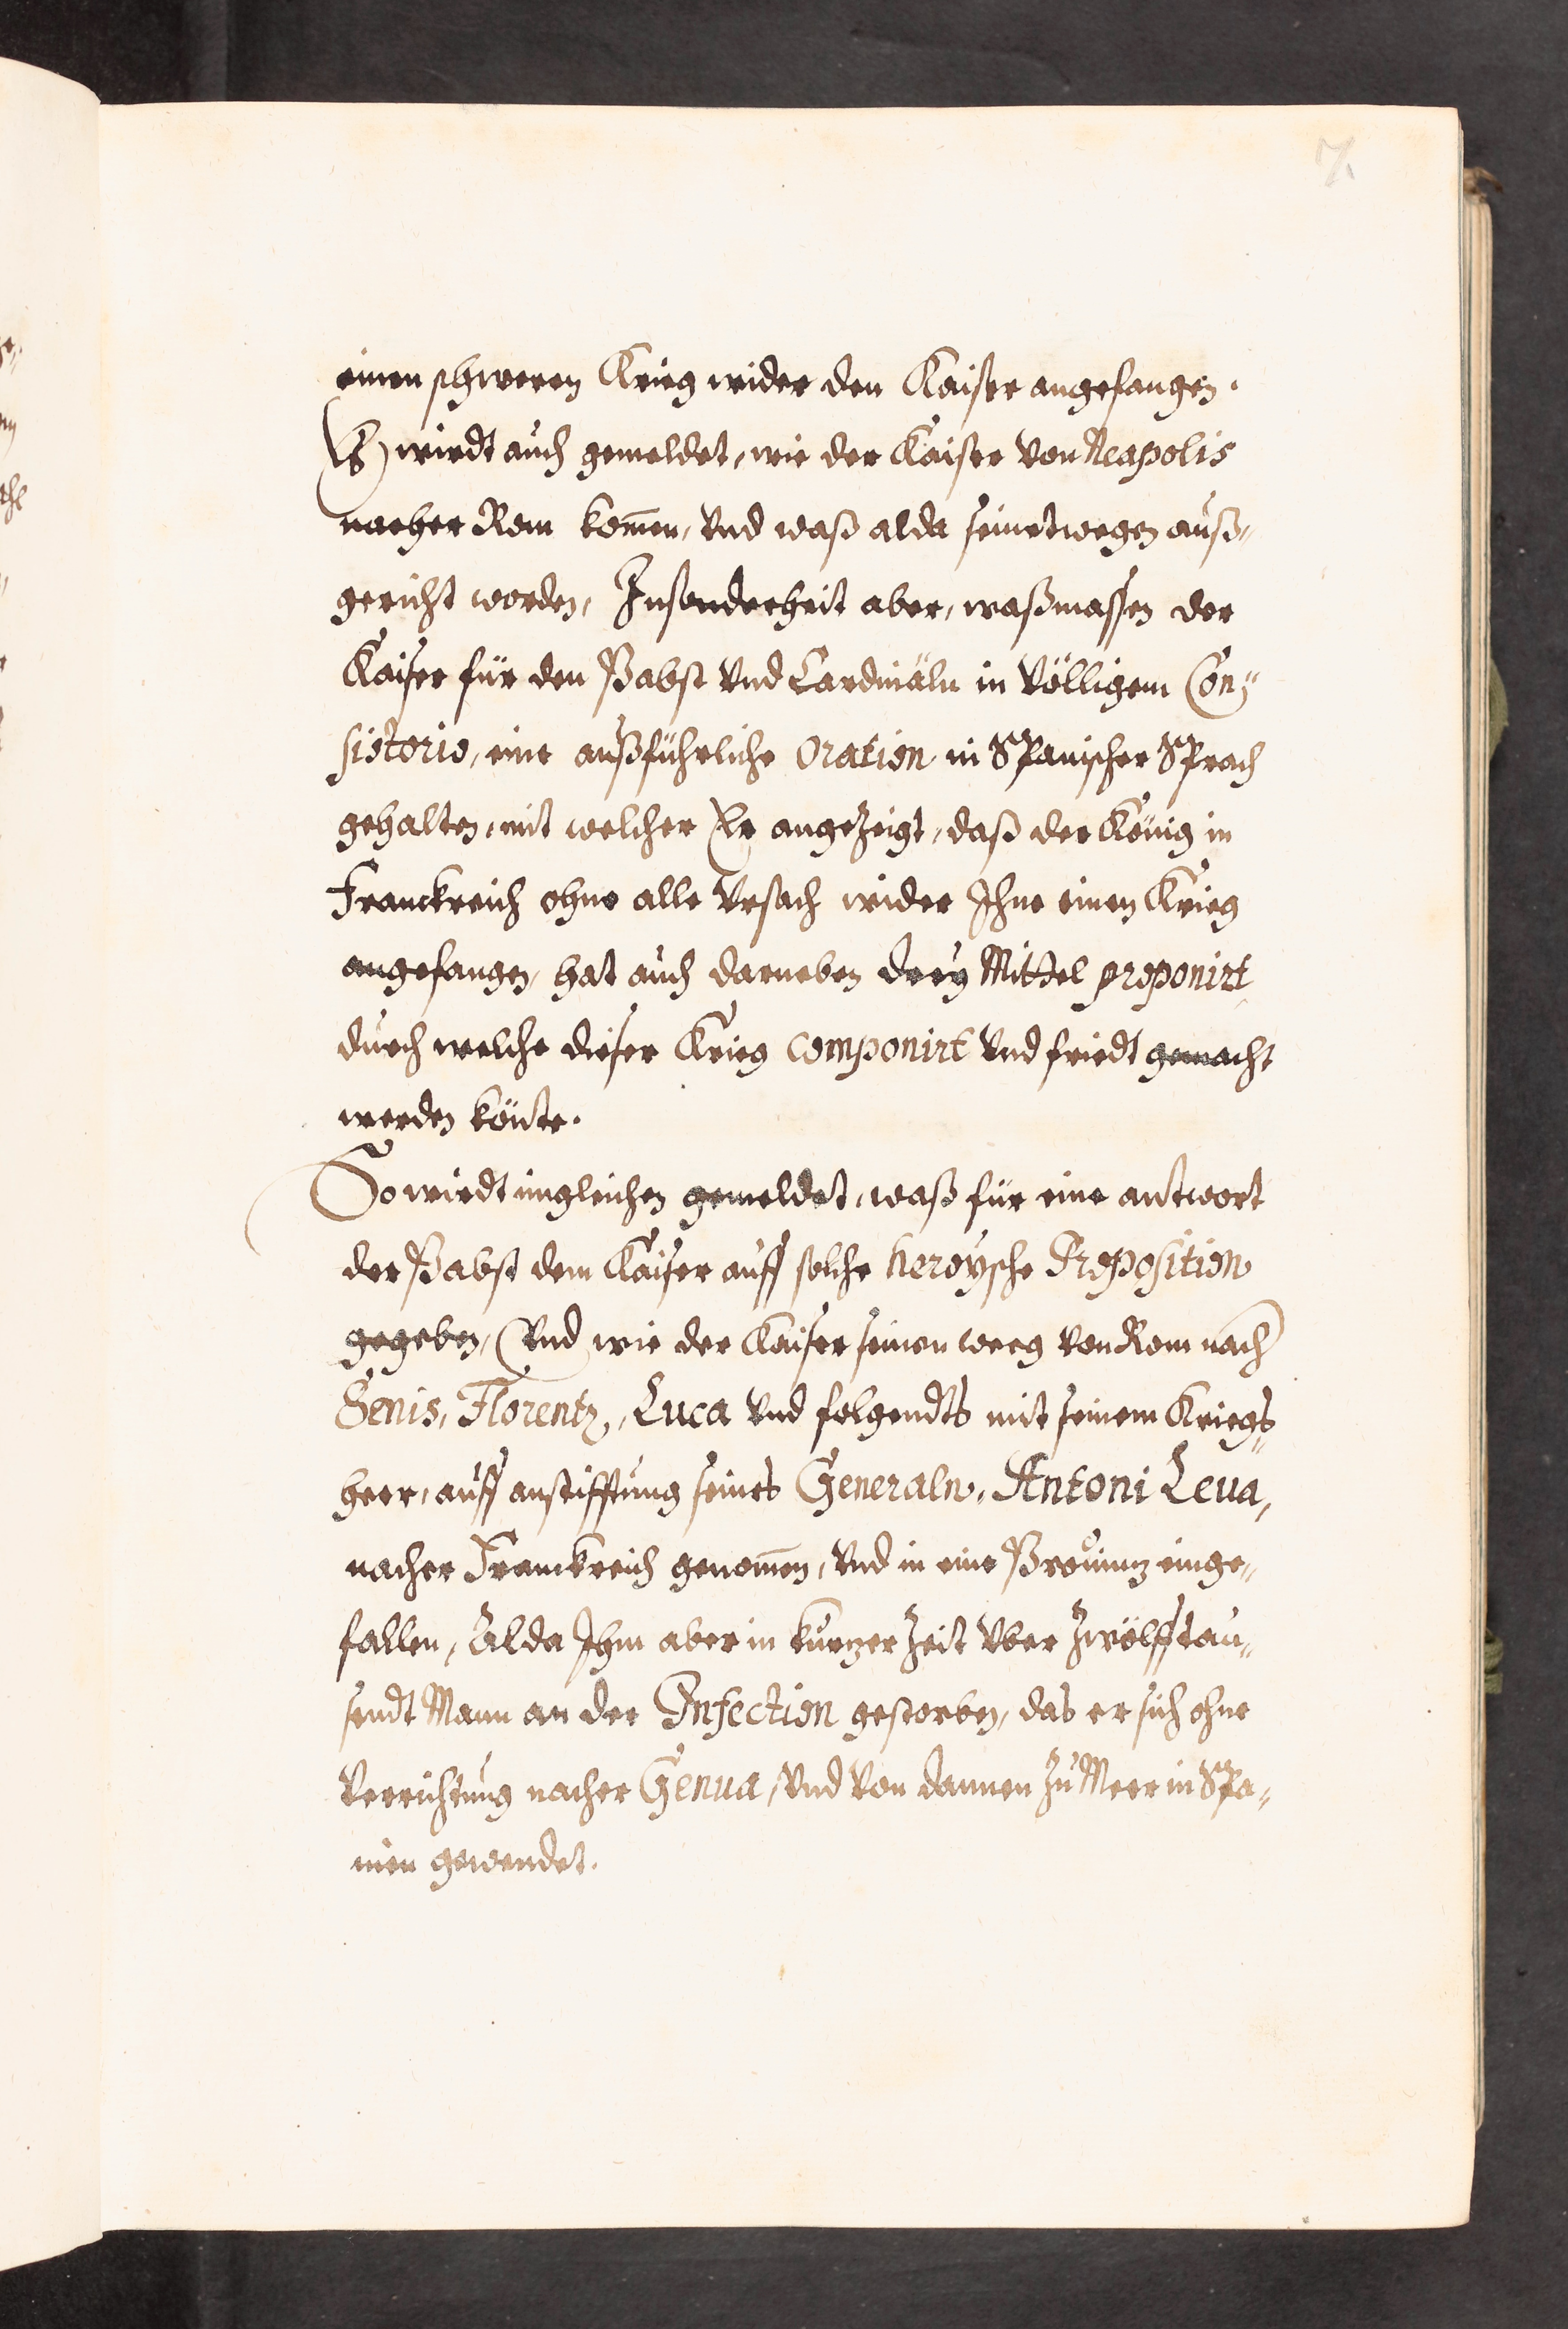 7.
einen schweren Krieg wider den Kaiser angefangen.
Es wirdt auch gemeldet, wie der Kaiser von Neapolis
nacher Rom kom̄en, vnd waß alda seinetwegen auß„
gericht worden, Insonderheit aber, waßmassen der
Kaiser für den Pabst vnd Cardinäln in völligem Con„
sistorio, eine außführliche Oration in Spanischer Sprach
gehalten, mit welcher Er angezeigt, daß der König in
Franckreich ohne alle Vrsach wider Ihne einen Krieg
angefangen, hat auch darneben drey Mittel proponirt
durch welche dieser Krieg componirt vnd friedt gemacht
werden könte.
So wirdt imgleichen gemeldet, waß für eine antwort
der Pabst dem Kaiser auff solche heroysche Proposition
gegeben, Vnd wie der Kaiser seinen weeg von Rom nach
Senis, Florentz, Luca vnd folgendts mit seinem Kriegs„
heer, auff anstifftung seines Generaln, Antoni Leua,
nacher Franckreich genom̄en, vnd in eine Prouintz einge„
fallen, Alda Ihm aber in kurtzer Zeit vber Zwölfftau„
sendt Mann an der Infection gestorben, das er sich ohne
verrichtung nacher Genua, vnd von dannen zu Meer in Spa„
nien gewendet.